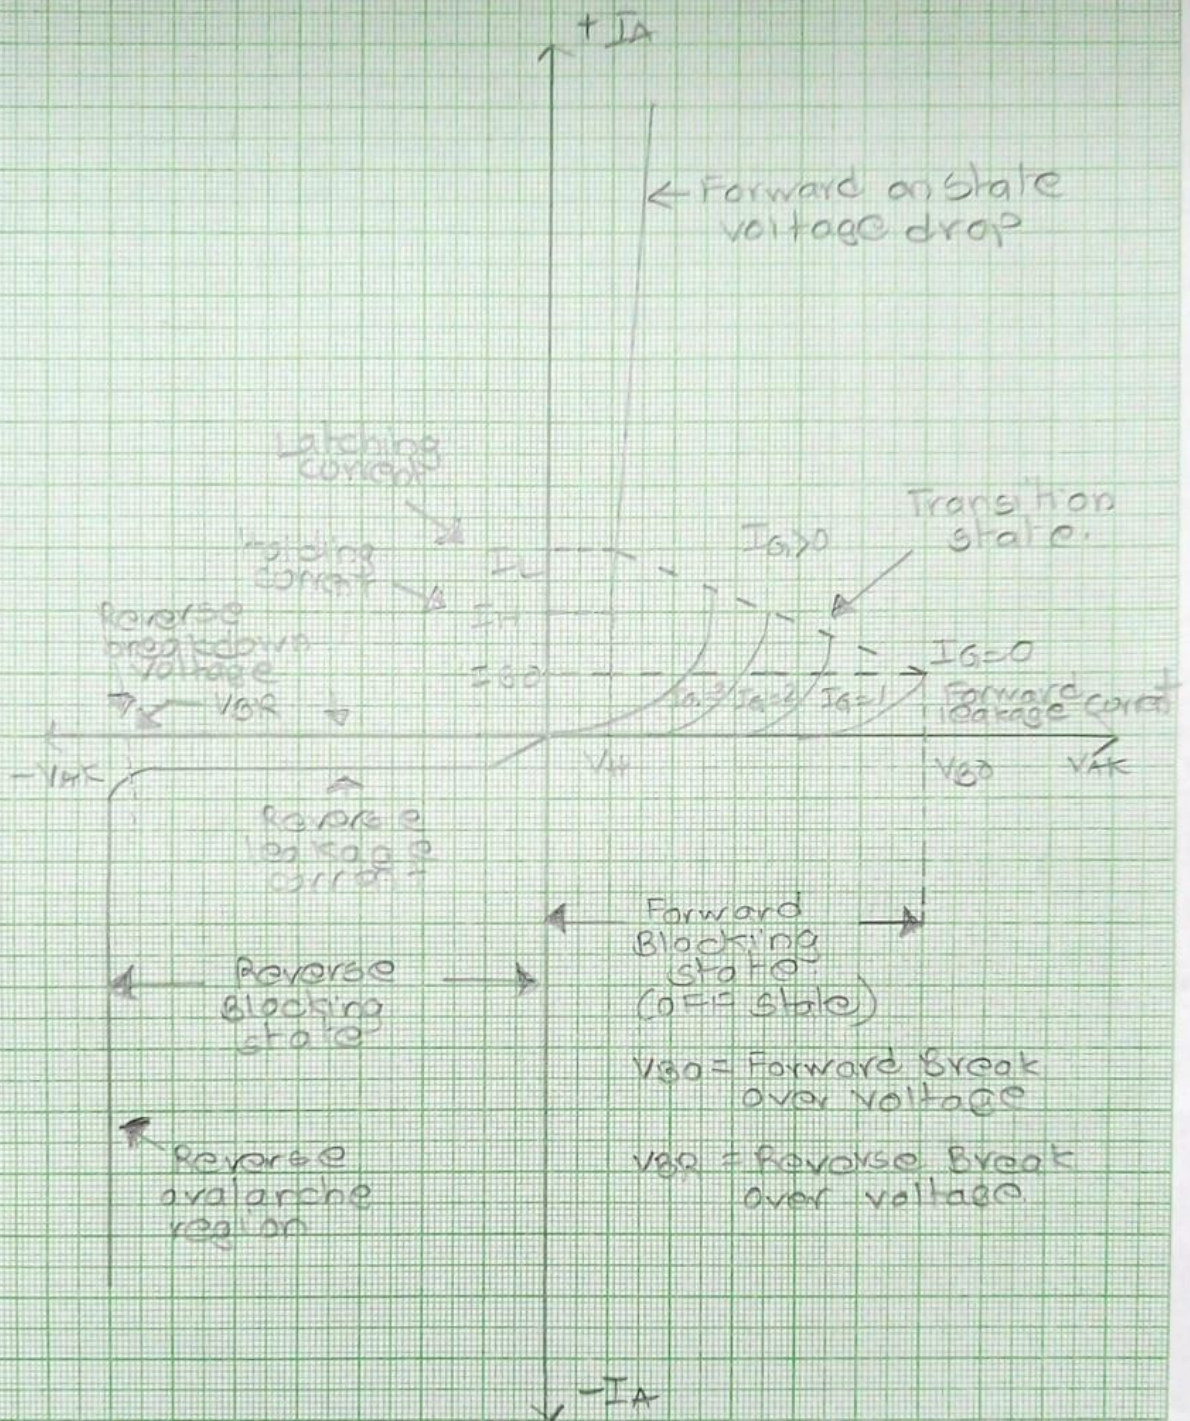 + IA
Forward on state
voltage drop
Latching
current
Transition
state.
IG>0
IL
Holding
current
IH
Reverse
breakdown
voltage
IG=0
IG=3
IG=2
IG=1
Forward
leakage current
VBR
-VAK
VH
VBO
VAK
Reverse
leakage
current
Forward
Blocking
state
(OFF state)
Reverse
Blocking
state
VBO = Forward Break
over voltage
Reverse
avalanche
region
VBR = Reverse Break
over voltage
-IA